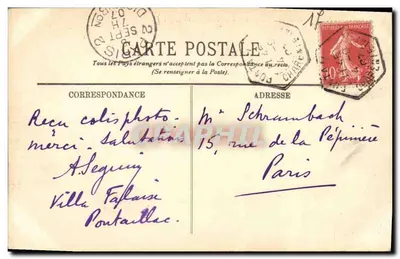 17
CARTE POSTALE
Tous les Pays étrangers n'acceptent pas la Correspondance au recto.
(Se renseigner à la Poste).
CORRESPONDANCE
Recu colis photo-
merci - salutations
A Seguin
Villa Falaise
Pontaillac
ADRESSE
Mr Schrambach
15, rue de la Pépinière
Paris